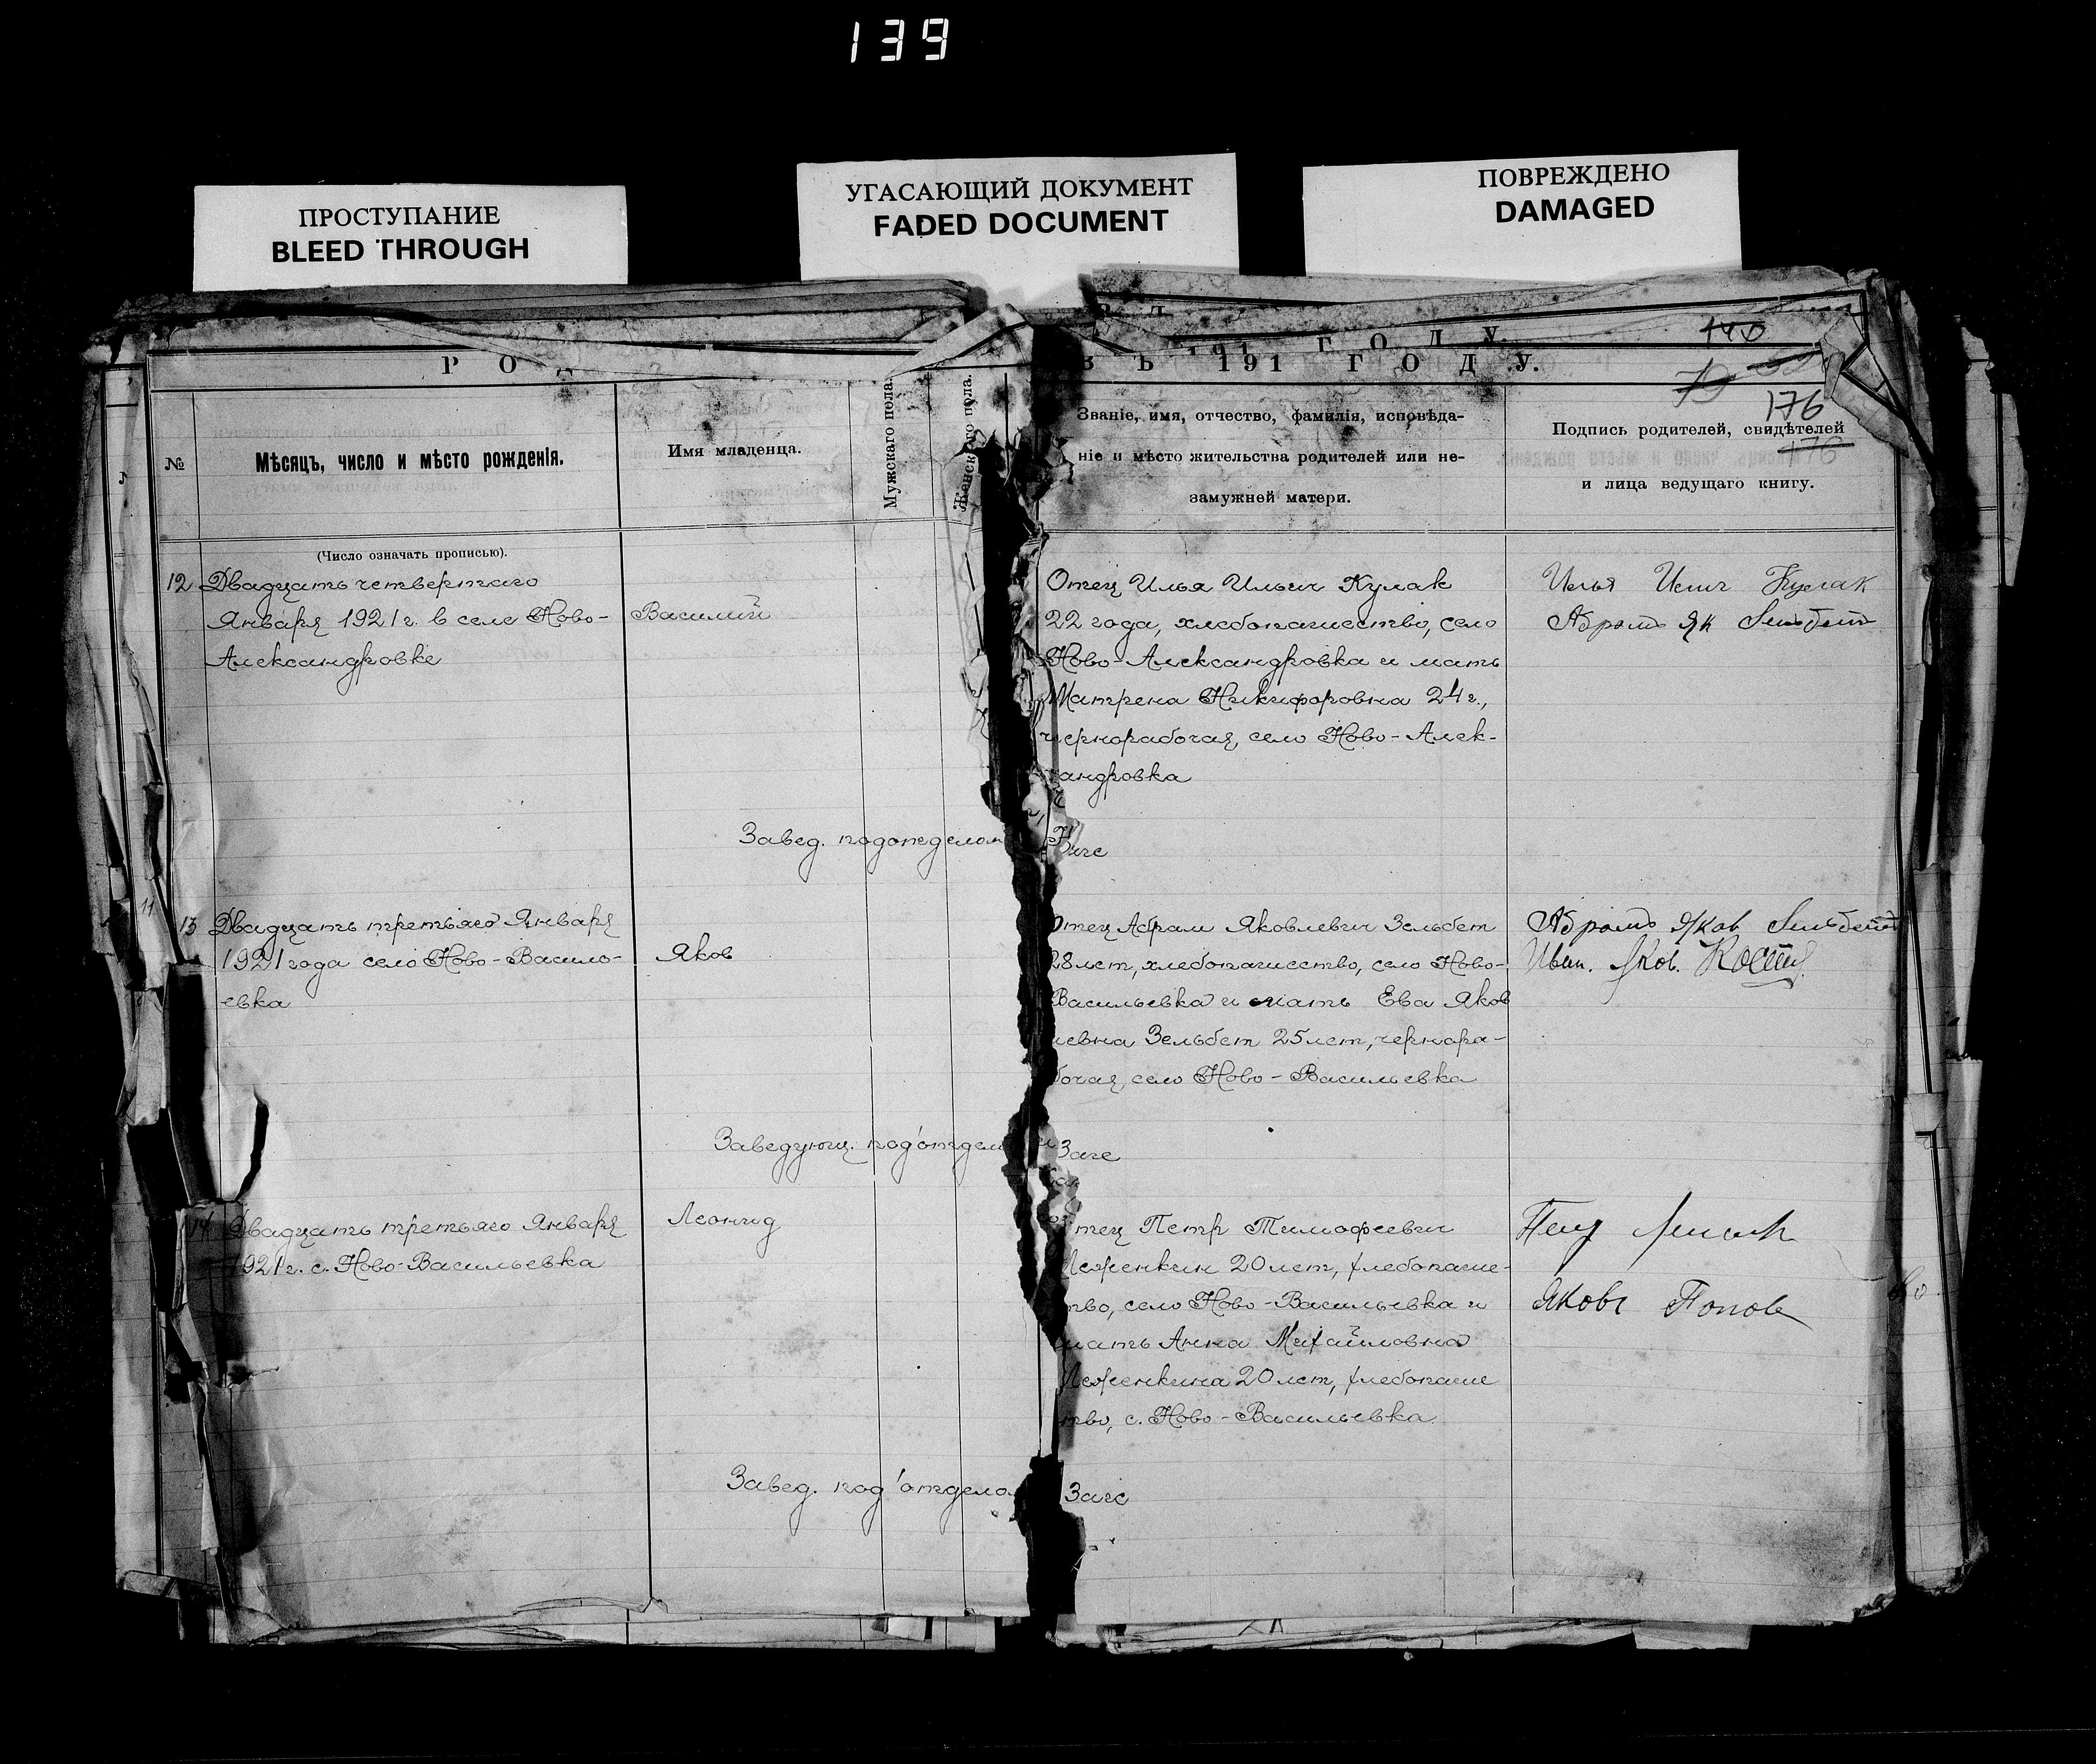 139
ПРОСТУПАНИЕ
BLEED THROUGH
УГАСАЮЩИЙ ДОКУМЕНТ
FADED DOCUMENT
ПОВРЕЖДЕНО
DAMAGED
Р О
В Ъ 191 Г О Д У.
140
79
176
176
№
Мѣсяцъ, число и мѣсто рожденія.
Имя младенца.
Мужскаго пола.
Женскаго пола.
Званіе, имя, отчество, фамилія, исповѣда-
ніе и мѣсто жительства родителей или не-
замужней матери.
Подпись родителей, свидѣтелей
и лица ведущаго книгу.
(Число означать прописью).
12 Двадцать четвертаго
Января 1921 г. в селе Ново-
Александровке
Василий
Отец Илья Ильич Кулак
22 года, хлебопашество, село
Ново-Александровка и мать
Матрена Никифоровна 24 г.,
чернорабочая, село Ново-Алек-
сандровка
Илья Илич Кулак
Абрам Як
Завед. подотделом Загс
13 Двадцать третьяго Января
1921 года село Ново-Василь-
евка
Яков
Отец Абрам Яковлевич Зельбет
28 лет, хлебопашество, село Ново-
Васильевка и мать Ева Яков
левна Зельбет 25 лет, чернора-
бочая, село Ново-Васильевка
Абрам Яков
Иван. Яков.
Заведующ. под'отделом Загс
14 Двадцать третьяго Января
1921 г. с. Ново-Васильевка
Леонид
Отец Петр Тимофеевич
Леженкин 20 лет, хлебопаше-
тво, село Ново-Васильевка и
мать Анна Михайловна
Леженкина 20 лет, хлебопаше
тво, с. Ново-Васильевка
Яковъ Попов
Завед. под'отдело Загс
11